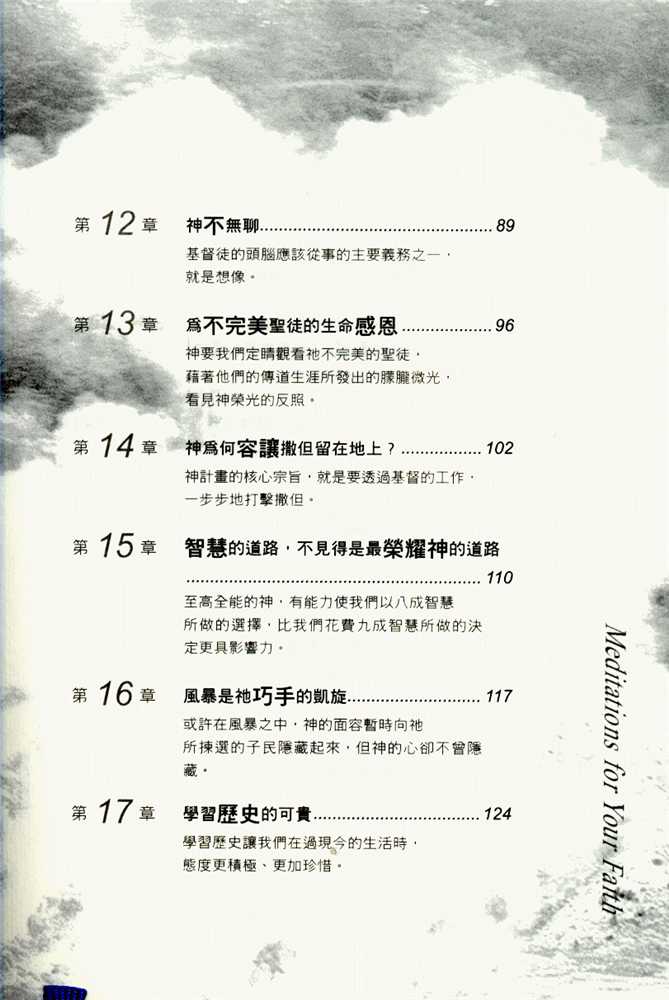 第12章 神不無聊................................................. 89
基督徒的頭腦應該從事的主要義務之一，
就是想像。
第13章 為不完美聖徒的生命感恩................... 96
神要我們定睛觀看祂不完美的聖徒，
藉著他們的傳道生涯所發出的朦朧微光，
看見神榮光的反照。
第14章 神為何容讓撒但留在地上？................. 102
神計畫的核心宗旨，就是要透過基督的工作，
一步步地打擊撒但。
第15章 智慧的道路，不見得是最榮耀神的道路
.............................................................. 110
至高全能的神，有能力使我們以八成智慧
所做的選擇，比我們花費九成智慧所做的決
定更具影響力。
第16章 風暴是祂巧手的凱旋............................ 117
或許在風暴之中，神的面容暫時向祂
所揀選的子民隱藏起來，但神的心卻不曾隱
藏。
第17章 學習歷史的可貴................................... 124
學習歷史讓我們在過現今的生活時，
態度更積極、更加珍惜。
Meditations for Your Faith